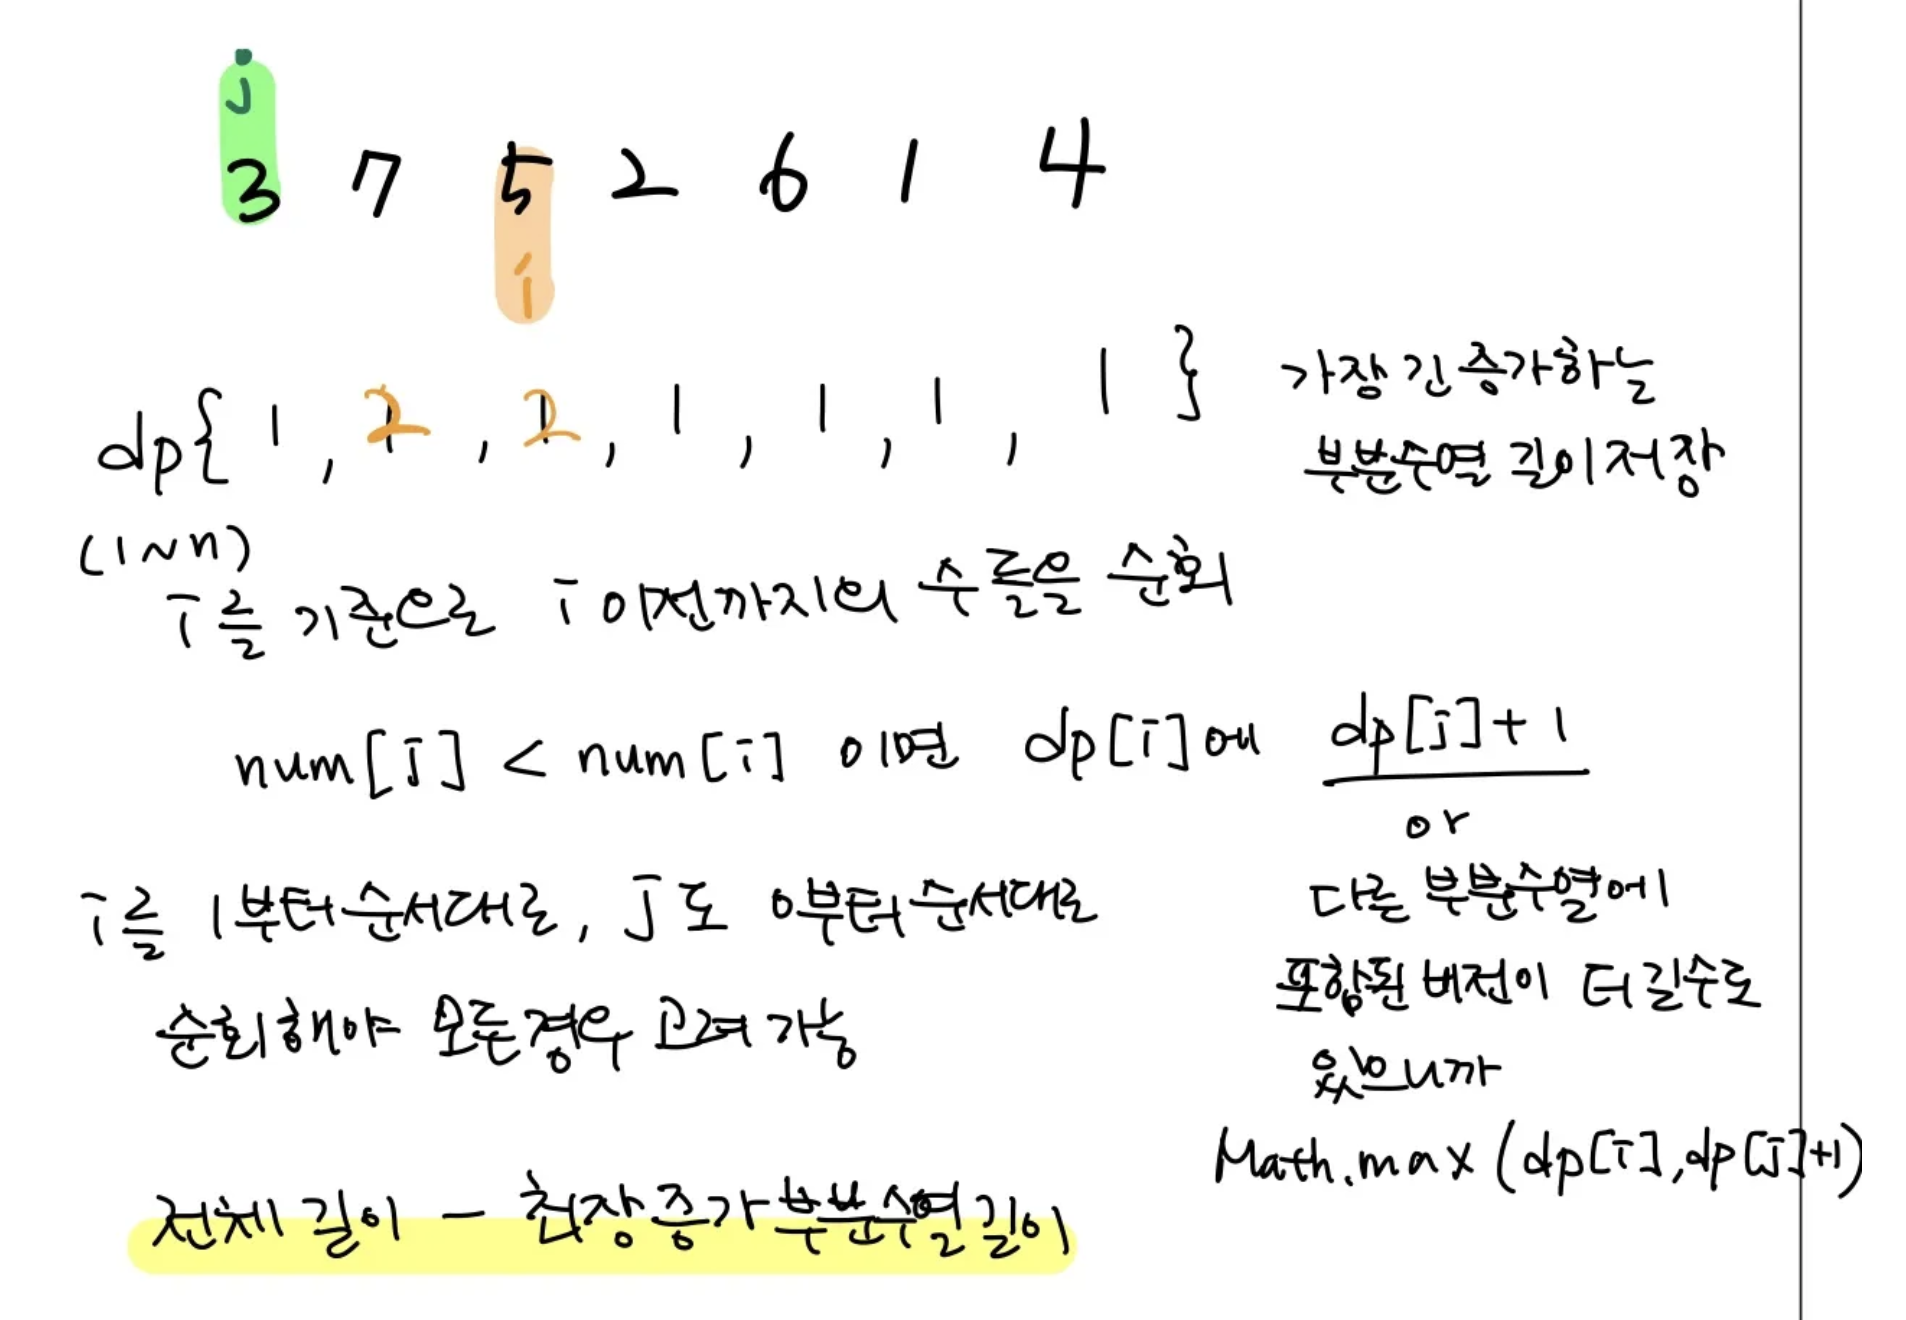 j
3 7 5 2 6 1 4
i
dp{ 1, 2, 2, 1, 1, 1, 1 }
가장 긴 증가하는
부분수열 길이 저장
(1~n)
i를 기준으로 i 이전까지의 수들을 순회
num[j] < num[i] 이면 dp[i]에 dp[j]+1
or
다른 부분수열에
포함된 버전이 더 길수도
있으니까
Math.max(dp[i],dp[j]+1)
i를 1부터 순서대로, j도 0부터 순서대로
순회해야 모든경우 고려 가능
전체 길이 - 최장증가부분수열길이